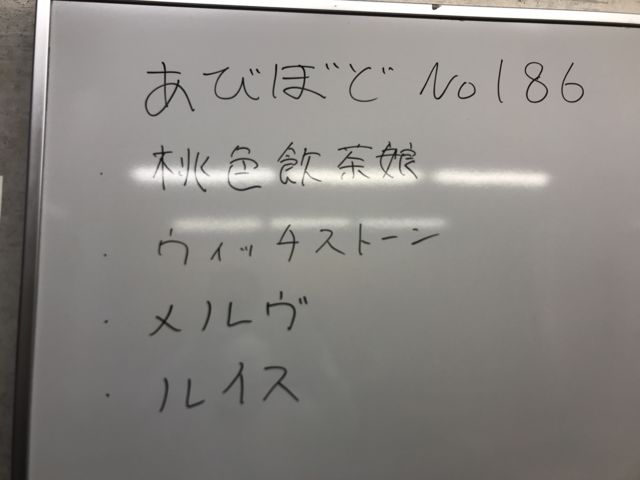 あびぼど No186
・桃色飲茶娘
・ウィッチストーン
・メルヴ
・ルイス